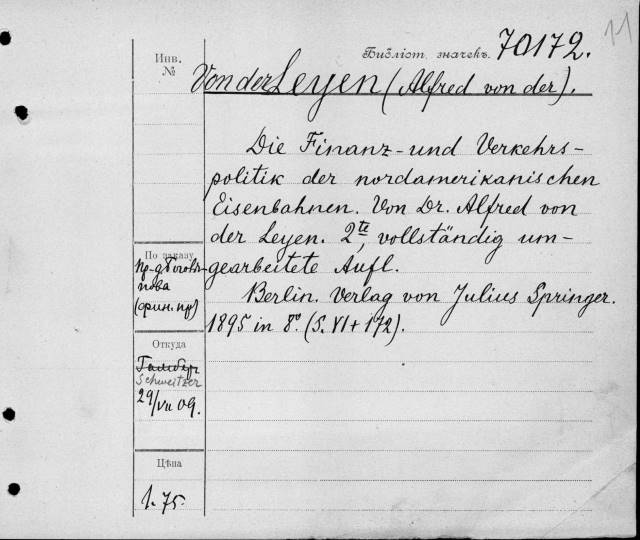 11
Библіот. значекъ. 70172.
Инв.
№
Von der Leyen (Alfred von der).
Die Finanz- und Verkehrs-
politik der nordamerikanischen
Eisenbahnen. Von Dr. Alfred von
der Leyen. 2te, vollständig um-
gearbeitete Aufl.
Berlin. Verlag von Julius Springer.
1895 in 8º. (S. VI + 172).
По заказу
нова
(фин. пр)
Откуда
Schweitzer
29/VII 09.
Цѣна
1.75